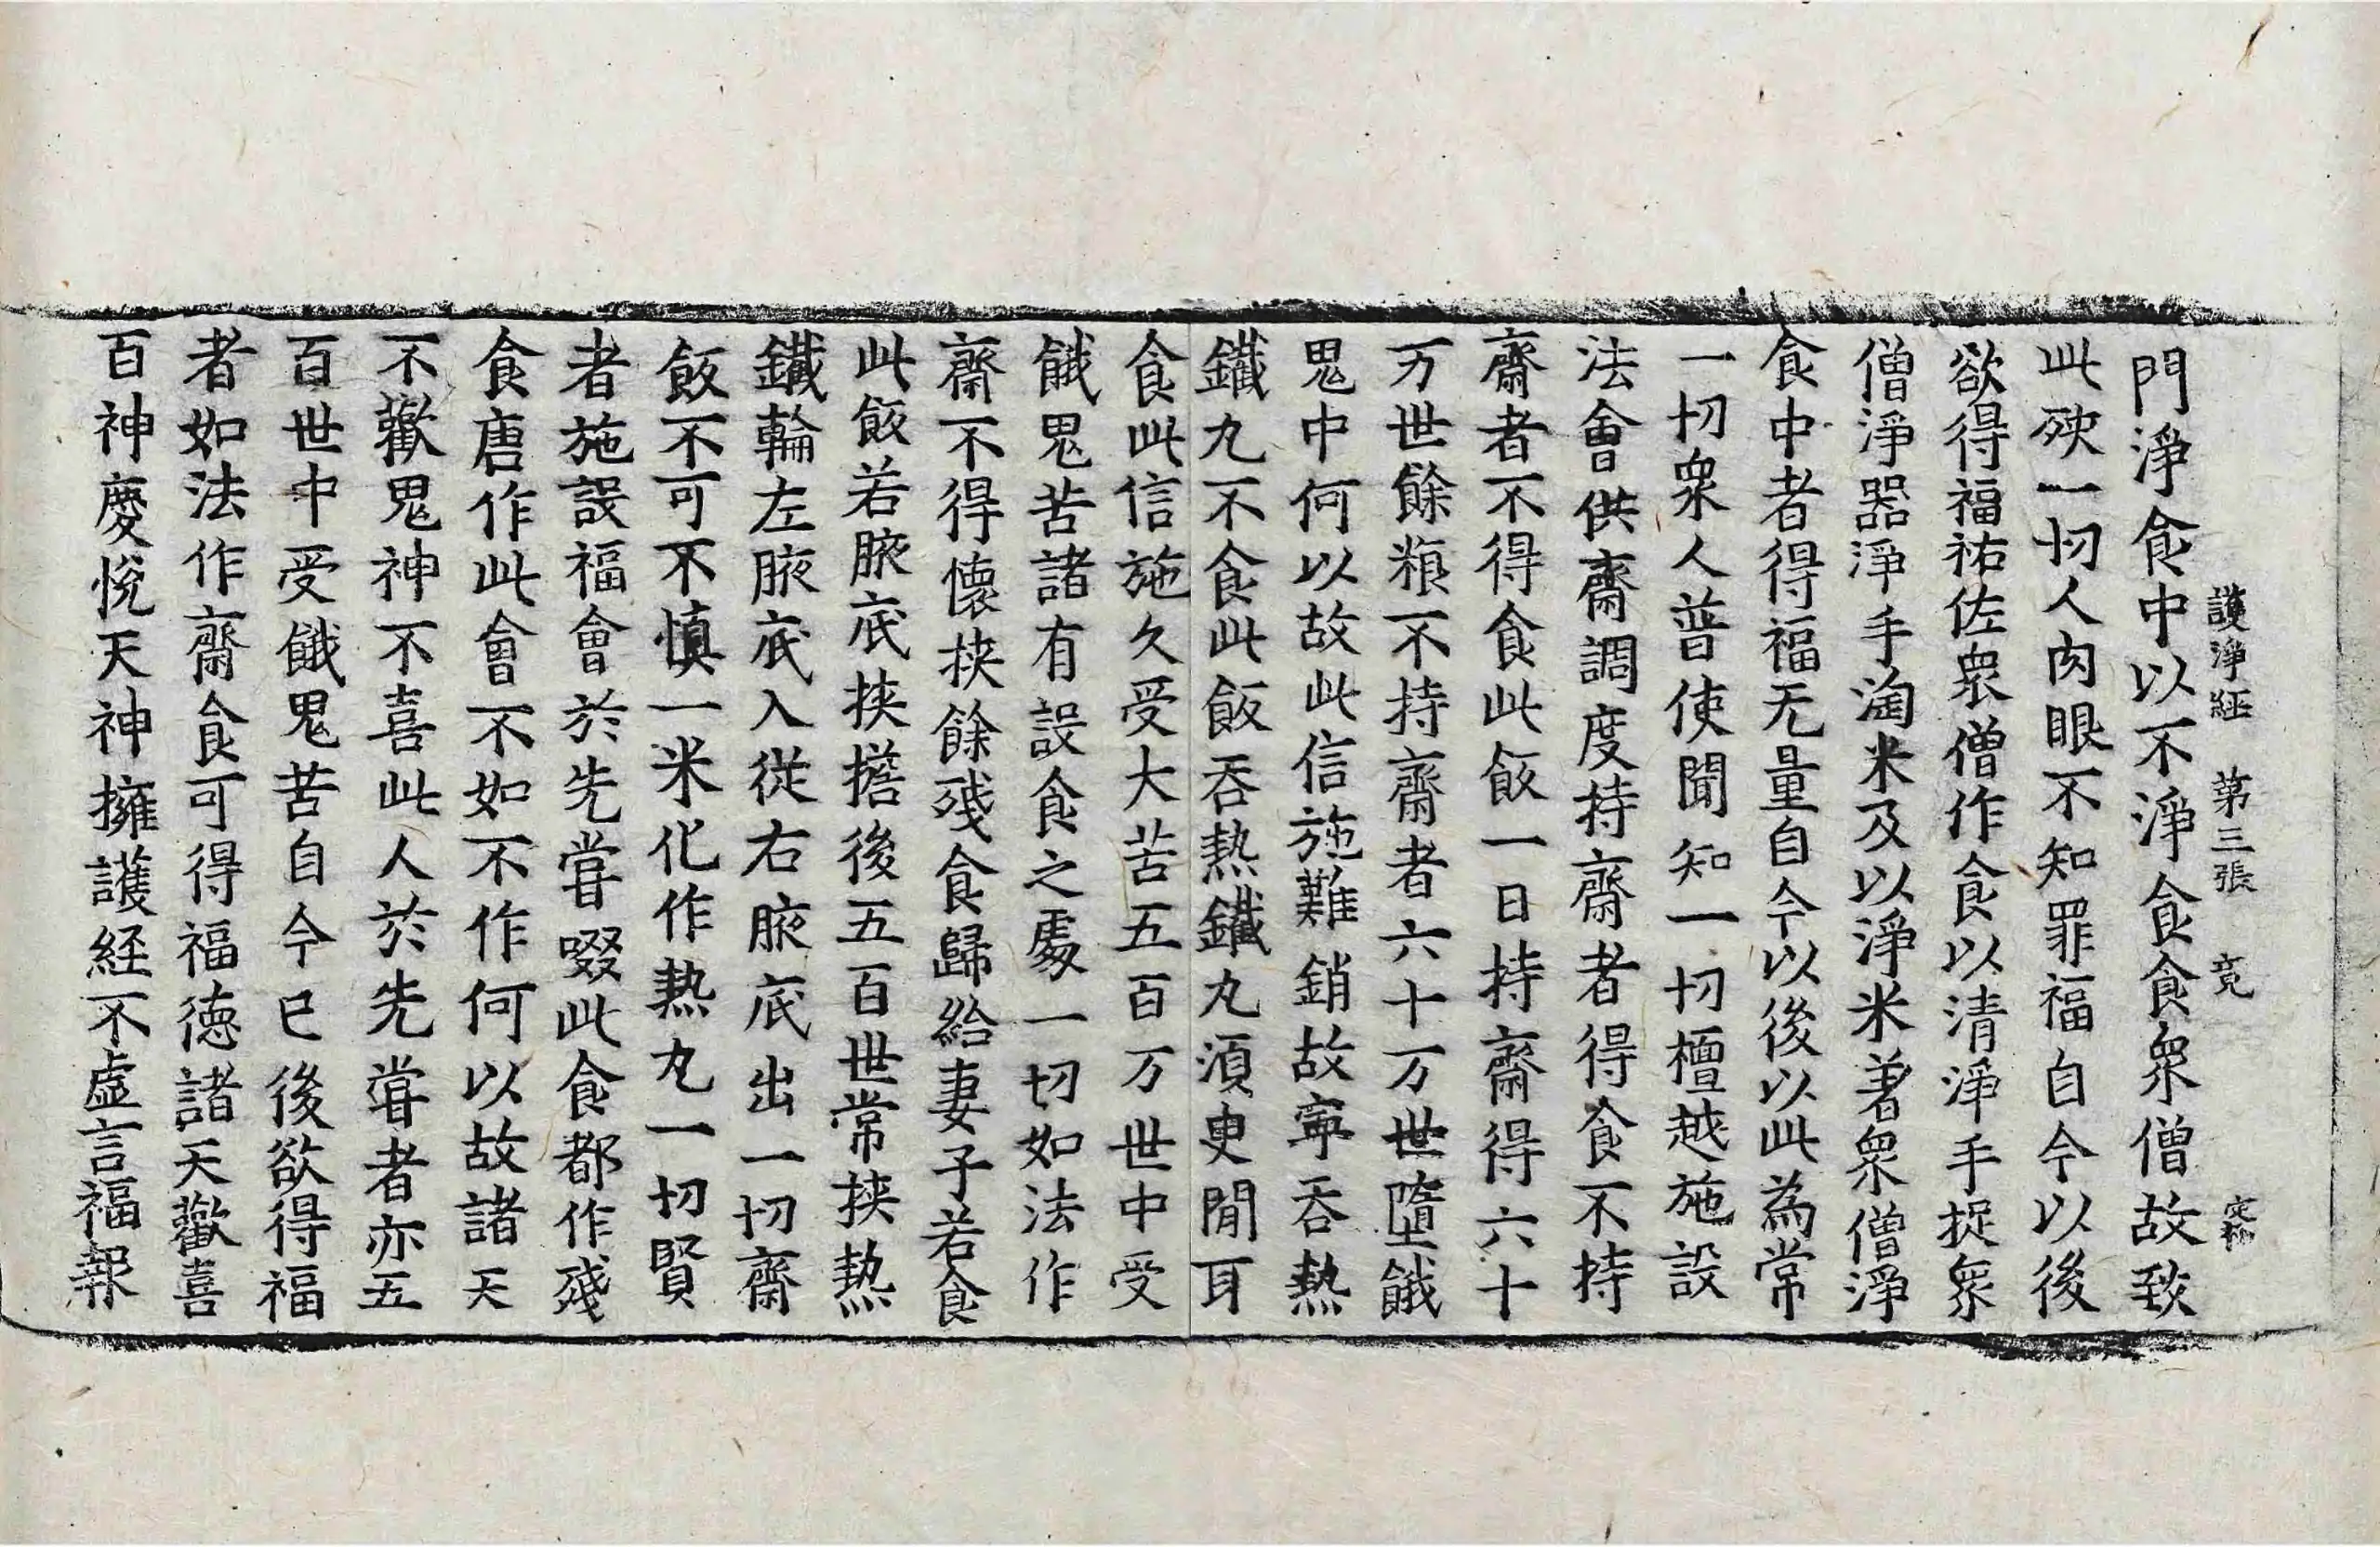 護淨經 第三張 竟 定林
門淨食中以不淨食食眾僧故致
此殃一切人肉眼不知罪福自今以後
欲得福祐佐眾僧作食以清淨手捉眾
僧淨器淨手淘米及以淨米著眾僧淨
食中者得福无量自今以後以此為常
一切眾人普使聞知一切檀越施設
法會供齋調度持齋者得食不持
齋者不得食此飯一日持齋得六十
万世餘粮不持齋者六十万世墮餓
鬼中何以故此信施難銷故寧吞熱
鐵丸不食此飯吞熱鐵丸須臾閒耳
食此信施久受大苦五百万世中受
餓鬼苦諸有設食之處一切如法作
齋不得懷挾餘殘食歸給妻子若食
此飯若腋底挾擔後五百世常挾熱
鐵輪左腋底入從右腋底出一切齋
飯不可不慎一米化作熱丸一切賢
者施設福會於先嘗啜此食都作殘
食唐作此會不如不作何以故諸天
不歡鬼神不喜此人於先嘗者亦五
百世中受餓鬼苦自今已後欲得福
者如法作齋食可得福德諸天歡喜
百神慶悅天神擁護経不虛言福報